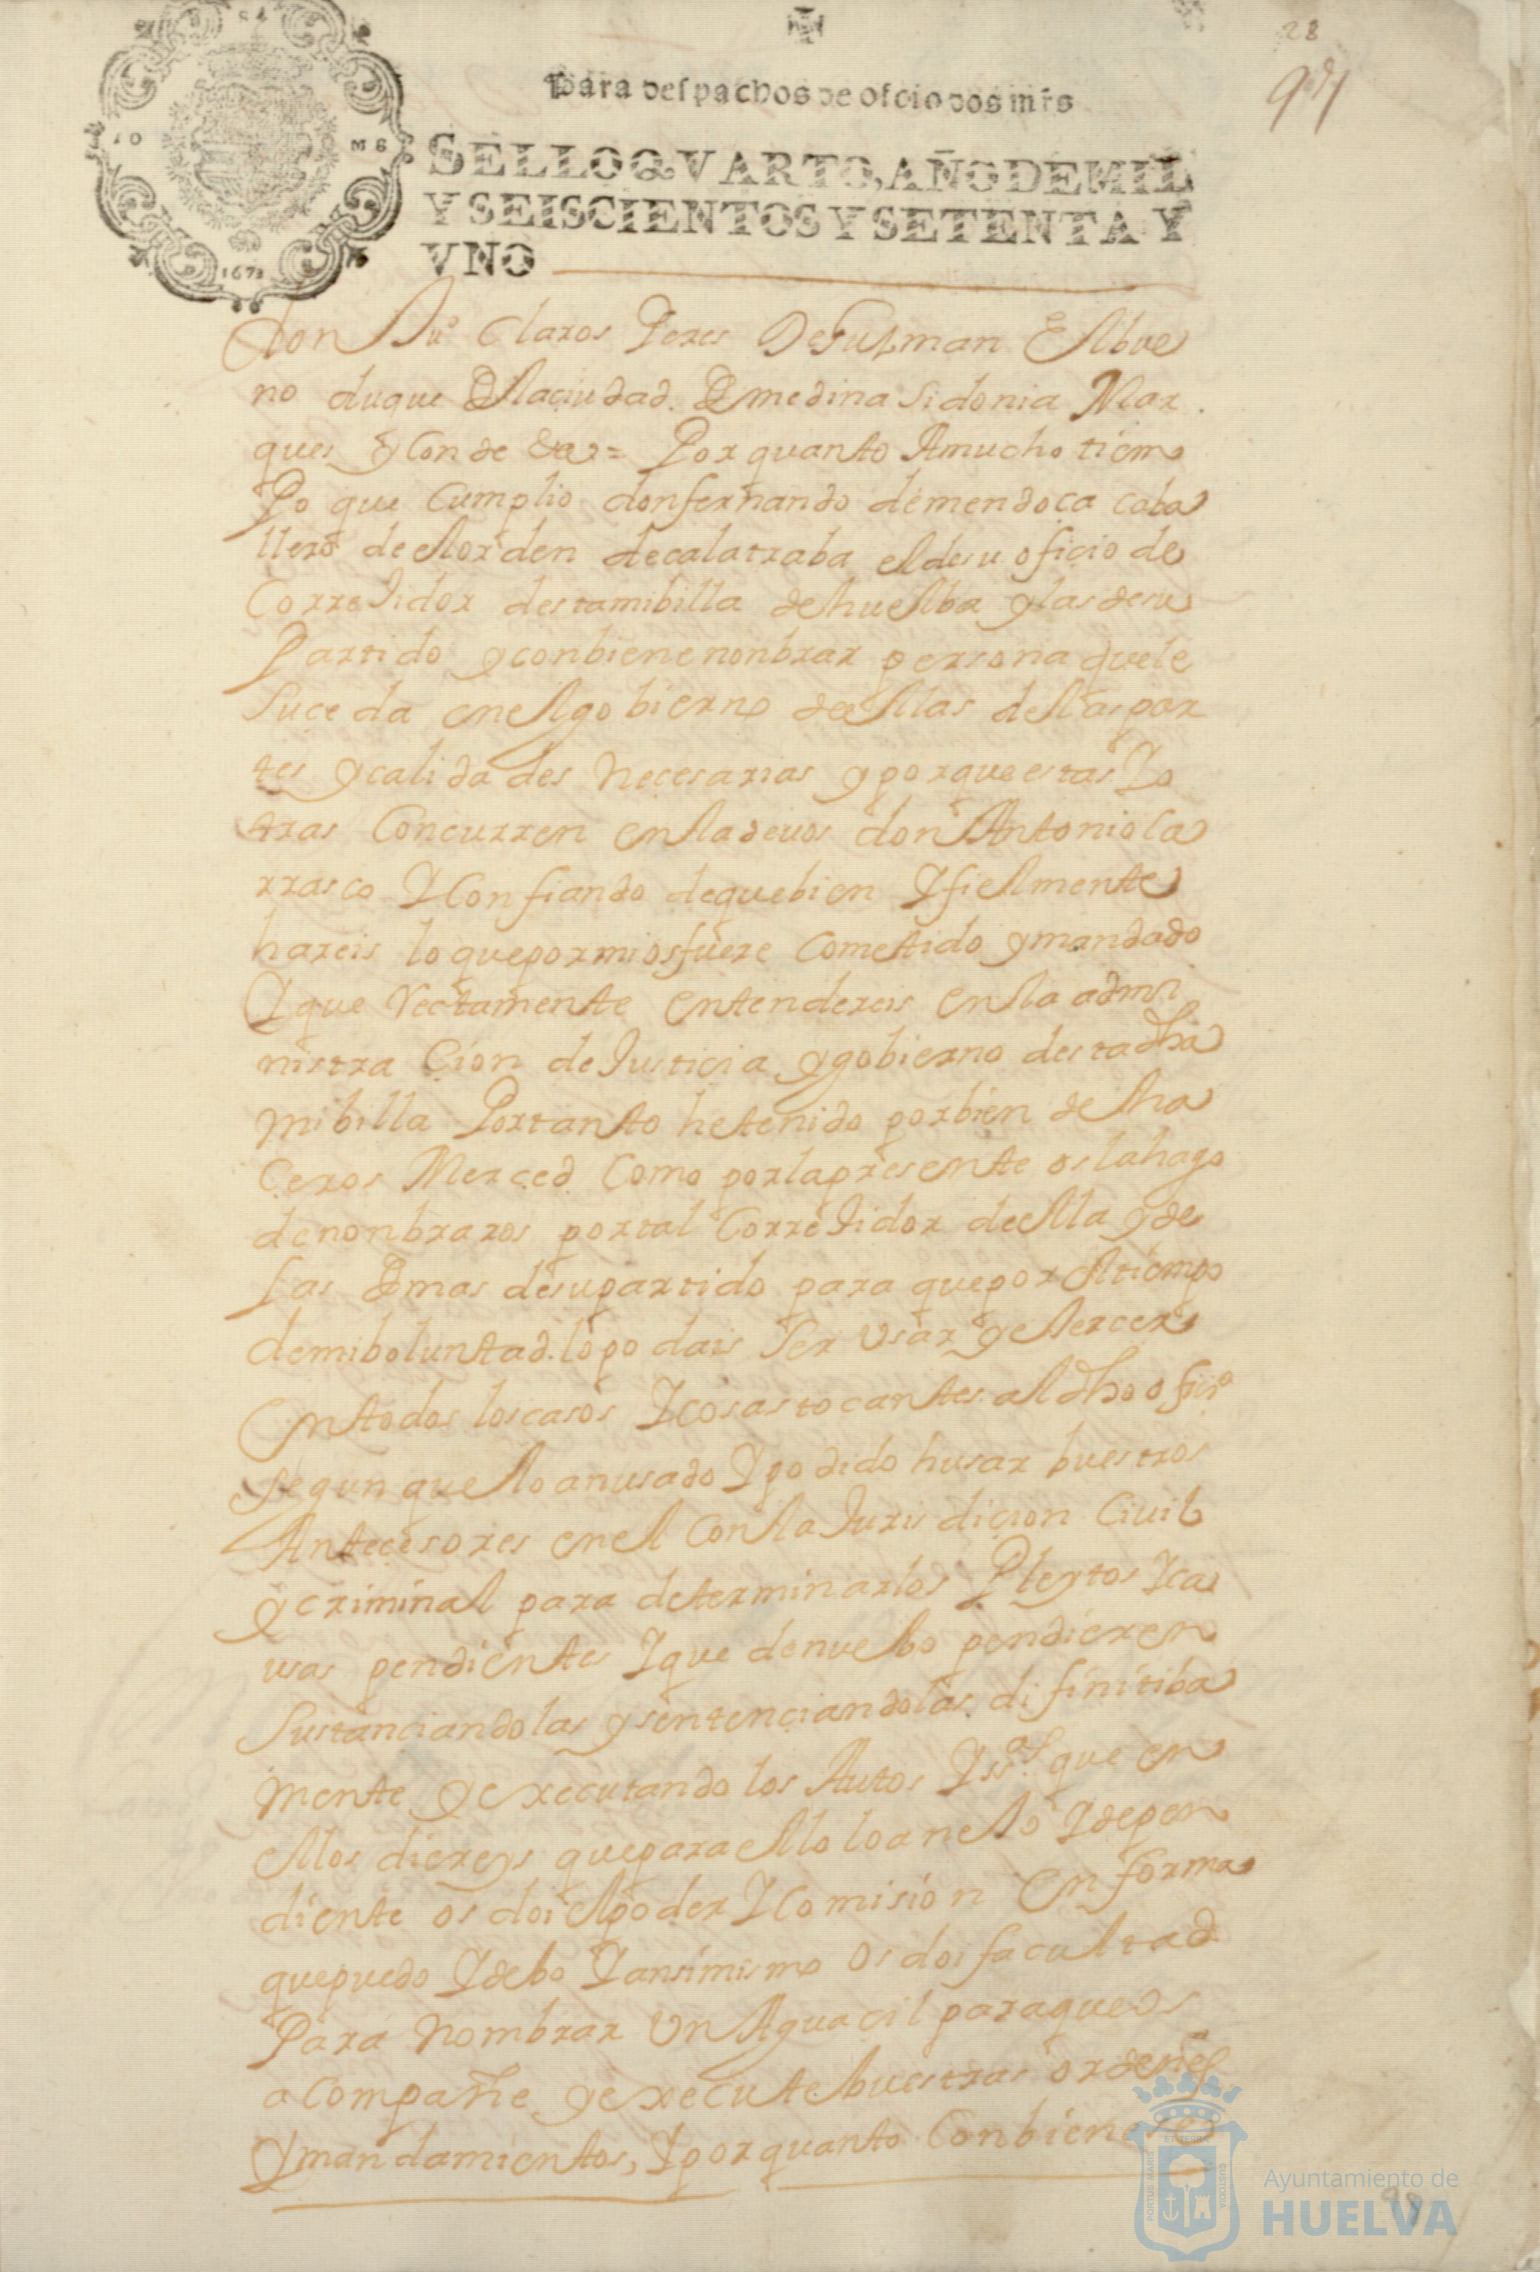 28
Para despachos de oficio dos mrs
SELLO QVARTO, AÑO DE MIL
Y SEISCIENTOS Y SETENTA Y
VNO
1671
Don Ju.º Claros Peres De Gusman El bue
no duque De la ciudad De medina Sidonia Mar
ques y Conde &a = Por quanto A mucho tiem
Po que Cumplio don fernando de mendoça caba
llero de el orden de calatraba el de su oficio de
CorreJidor desta mi billa de huelba y las de su
Partido y conbiene nonbrar persona que le
Suceda en el gobierno de ellas de las par
tes y calidades Necesarias y porque estas Y o
tras Concurren en la de vos don Antonio Ca
rrasco Y Confiando de que bien Y fielmente
hareis lo que por mi os fuere Cometido y mandado
Y que Rectamente entendereis en la admi
nistra Cion de Justicia y gobierno desta dha
mi billa Por tanto he tenido por bien de ha
Ceros Merced Como por la presente os la hago
de nonbraros por tal CorreJidor de ella y de
las Demas de su partido para que por el tiempo
de mi boluntad lo podais Ser Usar y eJercer
En todos los casos Y cosas tocantes al dho ofiº
Segun que lo an usado Y podido husar buestros
Antecesores en el Con la Jurisdicion Civil
y criminal para determinar los Pleytos Y ca
usas pendientes Y que de nuebo pendieren
Sustanciandolas y sentenciandolas difinitiba
mente y executando los Autos Y ssas que en
ellos diereys que para ello lo aneJo Y depen
diente os doi el poder Y Comision En forma
que puedo Y debo Y ansimismo Os doi facultad
Para Nombrar Un Aguacil para que Os
acompañe y execute buestras ordenes
Y mandamientos, Y por quanto Conbiene
PORTUS MARIS
CUSTODIA
Ayuntamiento de
HUELVA